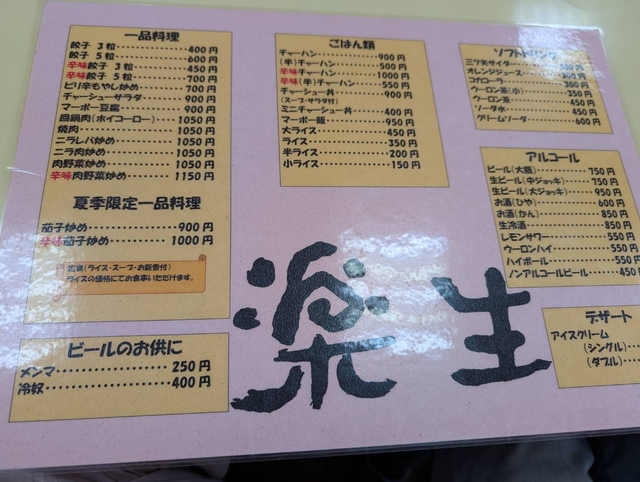 一品料理
餃子 3粒 400円
餃子 5粒 600円
辛味餃子 3粒 450円
辛味餃子 5粒 700円
ピリ辛もやし炒め 700円
チャーシューサラダ 900円
マーボー豆腐 900円
回鍋肉(ホイコーロー) 1050円
焼肉 1050円
ニラレバ炒め 1050円
ニラ肉炒め 1050円
肉野菜炒め 1050円
辛味肉野菜炒め 1150円
夏季限定一品料理
茄子炒め 900円
辛味茄子炒め 1000円
定食(ライス・スープ・お新香付)
ライスの価格にてお食事いただけます。
ビールのお供に
メンマ 250円
冷奴 400円
ごはん類
チャーハン 900円
(半)チャーハン 500円
辛味チャーハン 1000円
辛味(半)チャーハン 550円
チャーシュー丼 900円
(スープ・サラダ付)
ミニチャーシュー丼 400円
マーボー飯 950円
大ライス 450円
ライス 350円
半ライス 200円
小ライス 150円
楽生
ソフトドリンク
三ツ矢サイダー
オレンジジュース 300円
コカコーラ 300円
ウーロン茶(小) 350円
ウーロン茶 450円
ソーダ水 450円
クリームソーダ 600円
アルコール
ビール(大瓶) 750円
生ビール(中ジョッキ) 750円
生ビール(大ジョッキ) 950円
お酒(ひや) 600円
お酒(かん) 850円
生冷酒 850円
レモンサワー 550円
ウーロンハイ 550円
ハイボール 550円
ノンアルコールビール 450円
デザート
アイスクリーム
(シングル)
(ダブル)